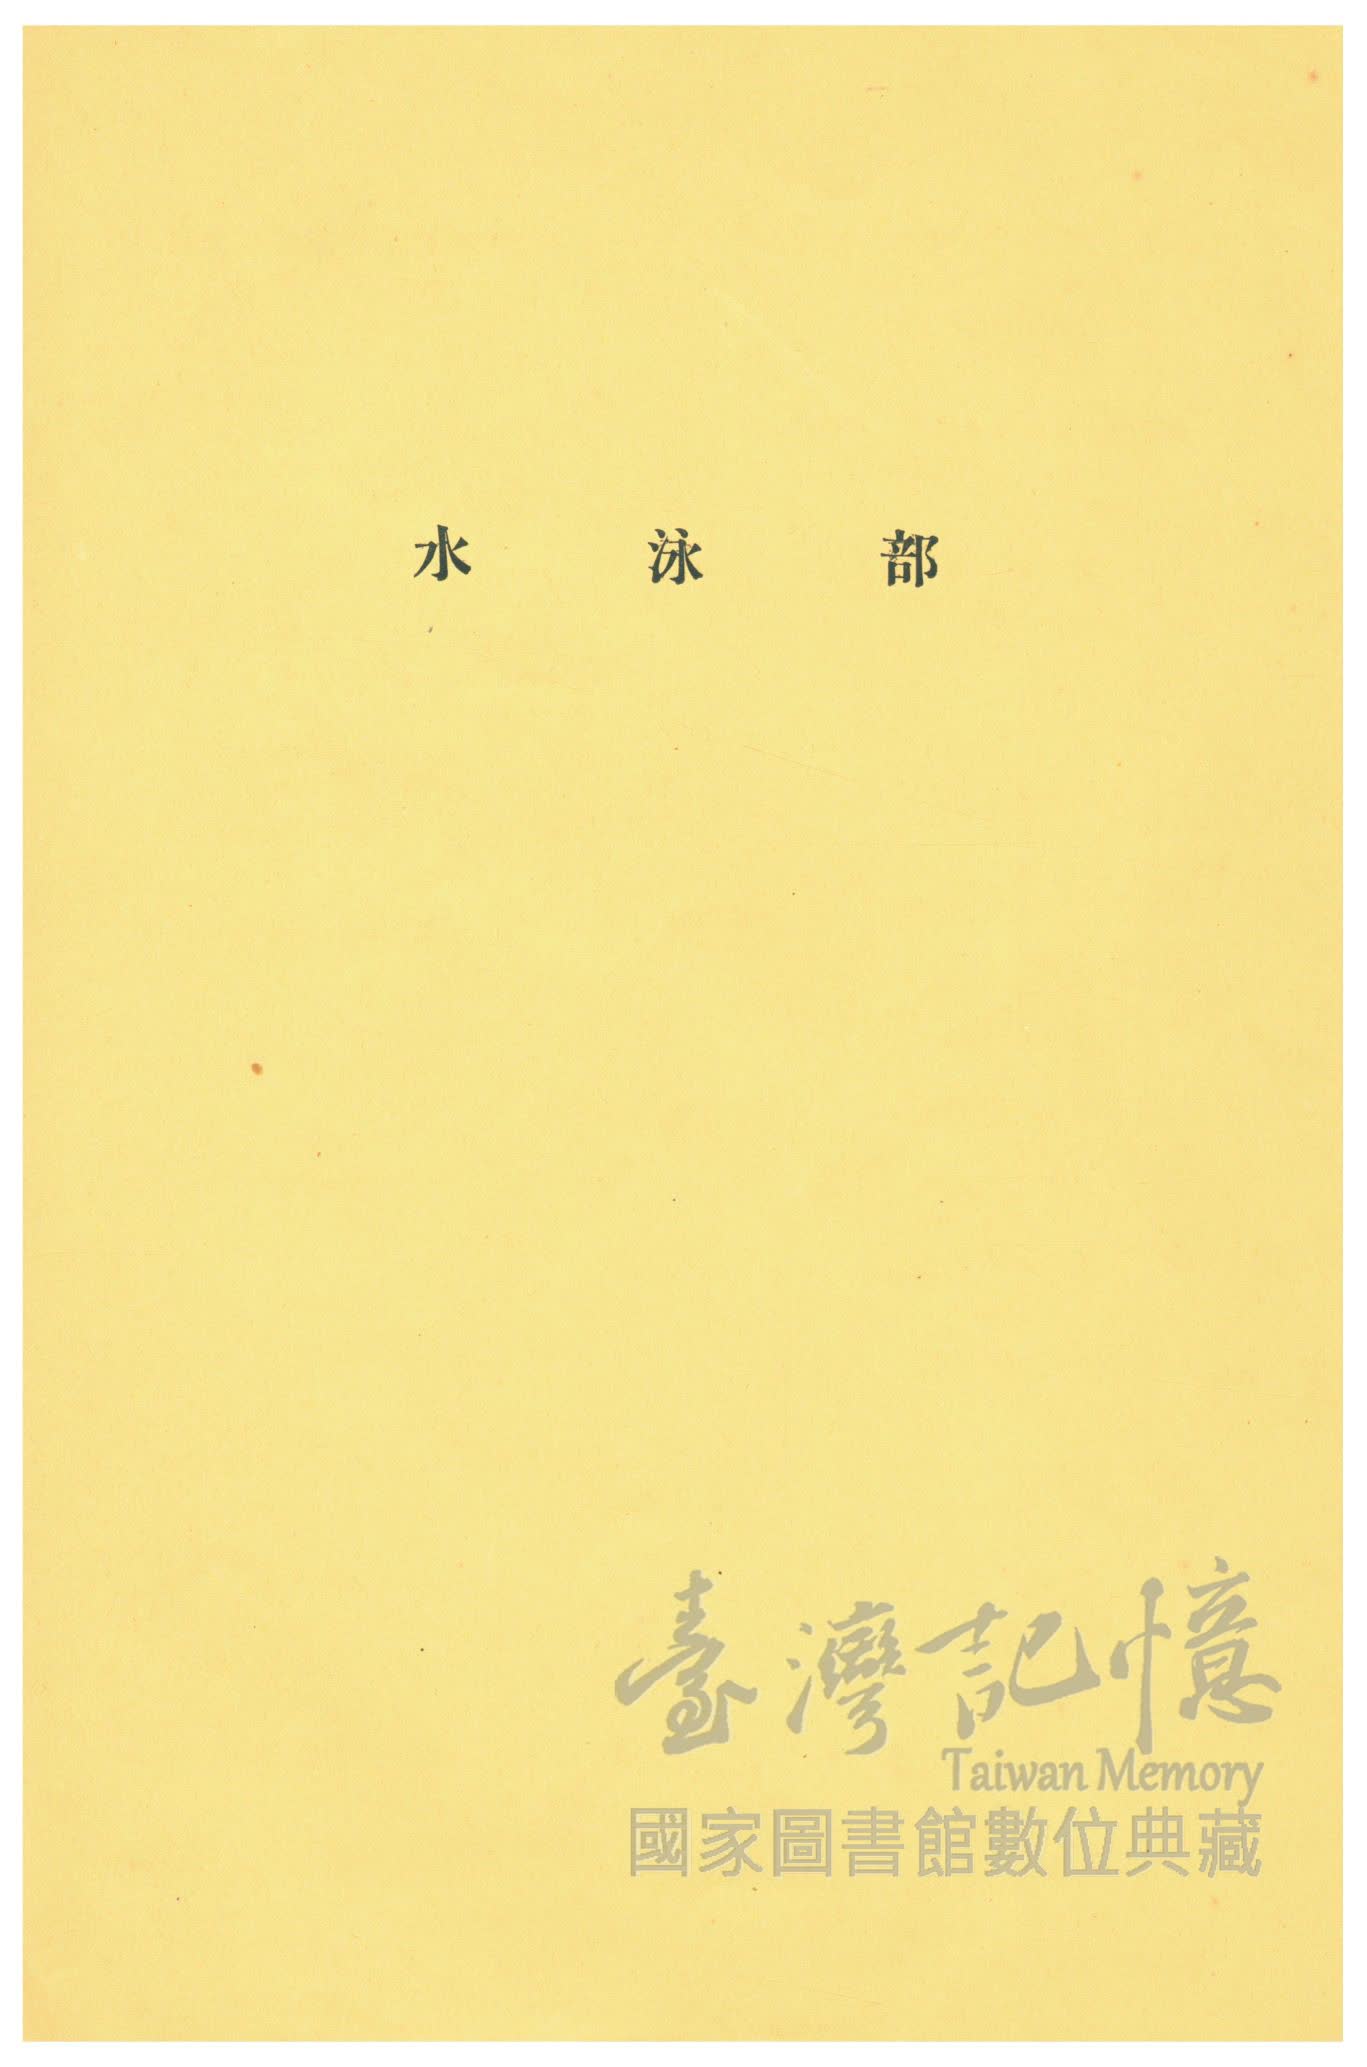 水泳部
臺灣記憶
Taiwan Memory
國家圖書館數位典藏